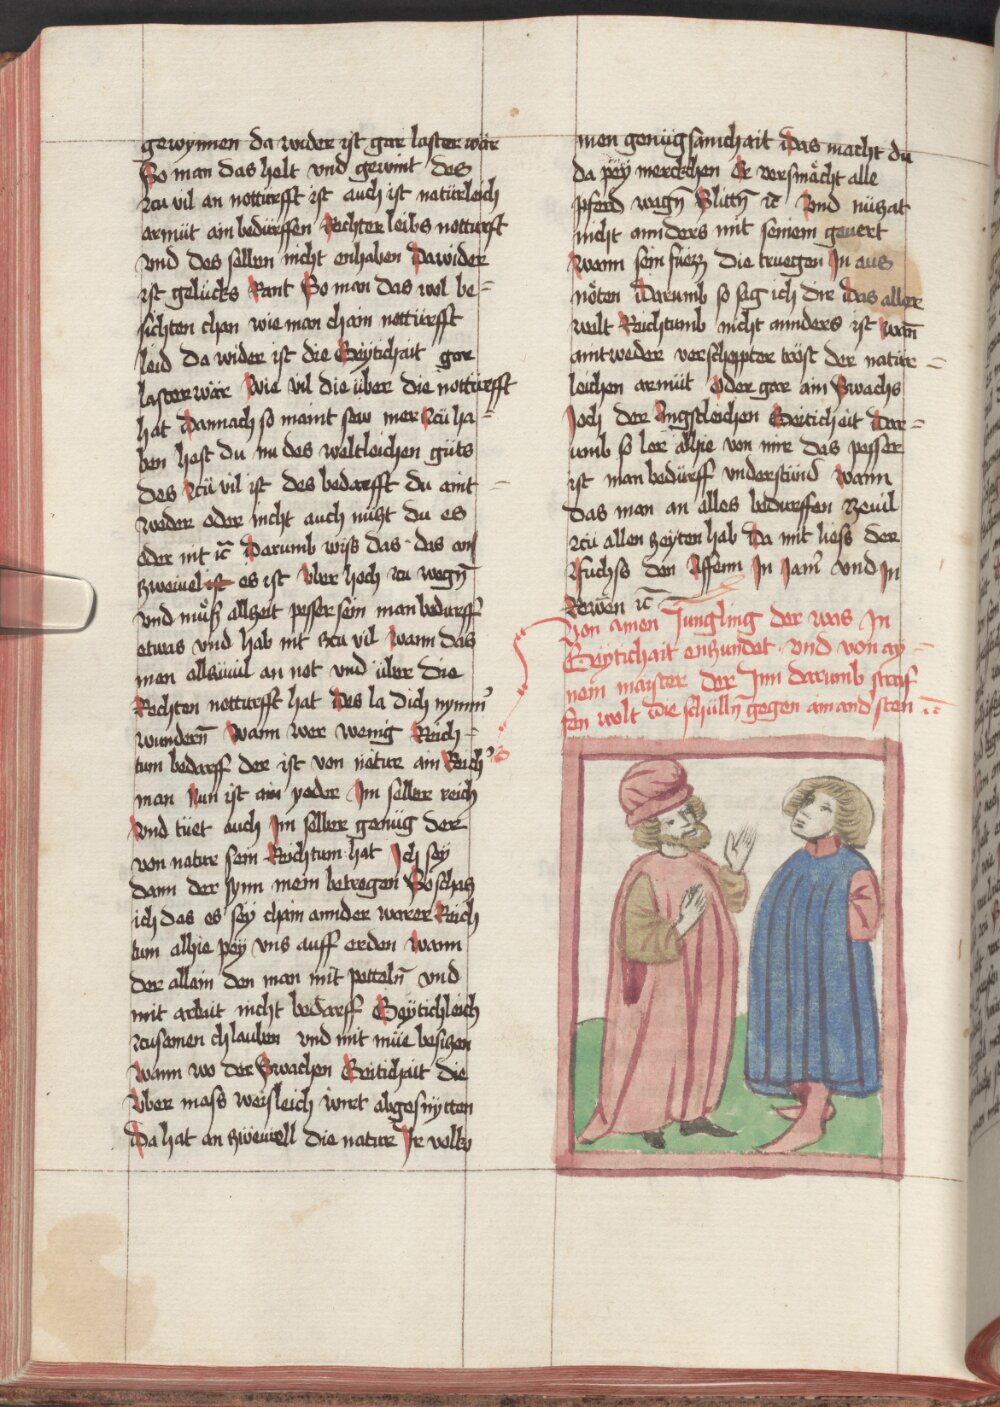 gewynnen da wider ist gar laster wär
So man das helt vnd gewint des
zcu vil an notturfft ist auch ist natürleich
armüt ain bedürffen Rechter leibs notturft
vnd des selben nicht enhaben Dawider
ist gelücks Rant So man das wol be=
sichten chan wie man chain notturfft
leid da wider ist die Geÿtichait gar
laster wär Wie vil die über die notturfft
hat Dannach so maint sew mer zcu ha=
ben hast du nu des weltleichen güts
des zcü vil ist des bedarfft du aint
weder oder nicht auch nüst du es
oder nit ic̄ Darumb wiss das das an
zweiuel ist es ist vber hoch zcu wegn̄
vnd müß allzeit pesser sein man bedurff
etwas vnd hab nit zcu vil Wann das
men allzuuil an not vnd über die
Rechten notturfft hat Des la dich nymm̄
wundern̄ Wann wer wenig Reich=
tum bedarff der ist von natur ain Reich
man Nun ist ain yeder Im selber reich
Vnd tüet auch Im selber genüg der
von natur sein Reichtum hat Ich seÿ
dann der synn mein betrogen So schätz
ich das es seÿ chain annder warer Reich
tum alhie peÿ vns auff erden Wann
der allain den man mit petteln̄ vnd
mit arbait nicht bedarff Geÿtichleich
zcusamen chlauben vnd mit müe besitzen
Wann wo der Swachen Geitichait die
Vber mass weisleich wirt abgesnytten
Da hat an zweiuell die natur Ir volko
men genügsamchait Das macht du
da peÿ merckchen Er versmächt alle
pferd wägn̄ Slittn̄ ic̄ Vnd nützat
nicht annders mit seinem geuert
Wann sein füezz die truegen In aus
nöten Darumb so sag ich dir Das aller
welt Reichtumb nicht annders ist Wan̄
aintweder verschoppter tröst der natur=
leichen armüt Oder gar ain Swachs
Joch der Angstleichen Geitichait Dar=
umb so ler alhie von mir das pesser
ist man bedürff vnderstund Wann
das man an alles bedurffen zeuil
zcu allen zeyten hab Da mit liess der
Fuchss den Affenn In Iam̄ vnd In
Rewen ic̄
Von ainem Jungling der was In
Geÿtichait enzundet vnd von ay=
nem maister der Inn darumb straf
fen wolt Die schülln̄ gegen ainand sten ic̄